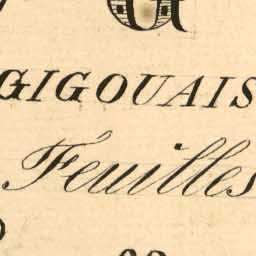 GIGOUAIS
Feuilles